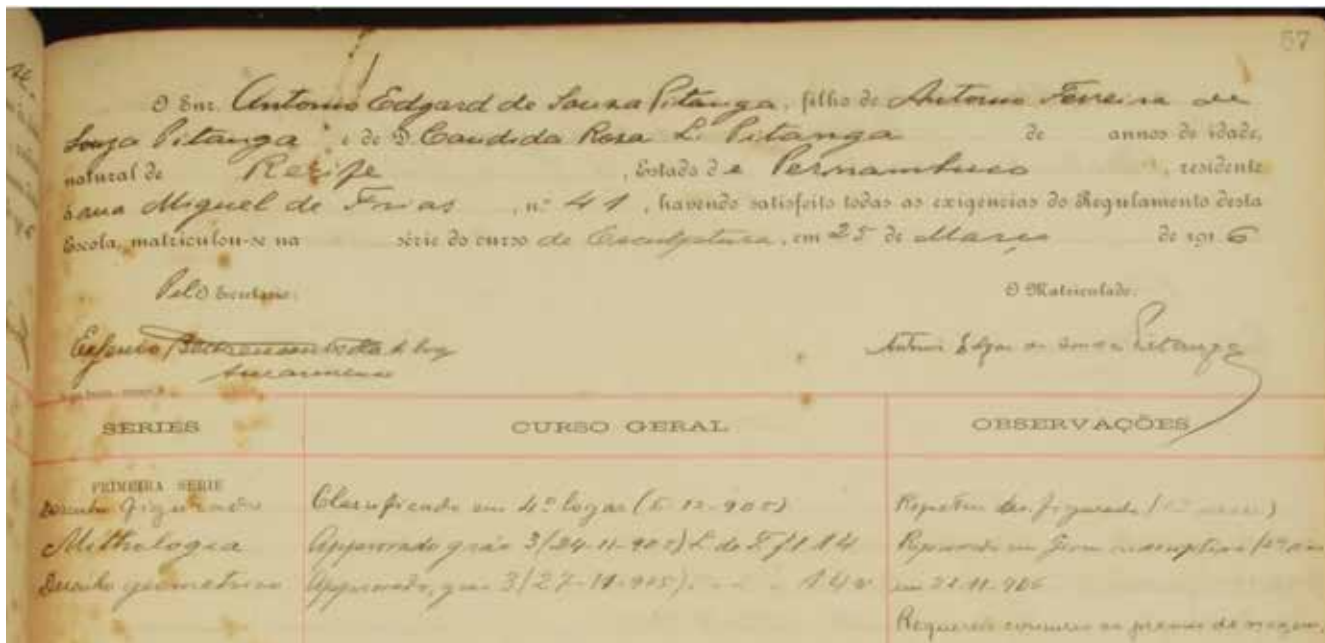 57
O Snr. Antonio Edgard de Souza Pitanga, filho de Antonio Ferreira de
Souza Pitanga e de D. Candida Rosa L. Pitanga de annos de idade,
natural de Recife, Estado de Pernambuco, residente
á rua Miguel de Frias, nº 41, havendo satisfeito todas as exigencias do Regulamento desta
Escola, matriculou-se na série do curso de Esculptura, em 25 de Março de 1916
Pelo Secretario. O Matriculado.
Antonio Edgar de Souza Pitanga
SERIES CURSO GERAL OBSERVAÇÕES
PRIMEIRA SERIE
Desenho figurado Classificado em 4º logar (5-12-905)
Mithologia Approvado gráo 3 (24-11-905) L do
Desenho geometrico Approvado, gráo 3 (27-11-905) 14v em 21-11-906
Requereu concurso ao premio de viagem,